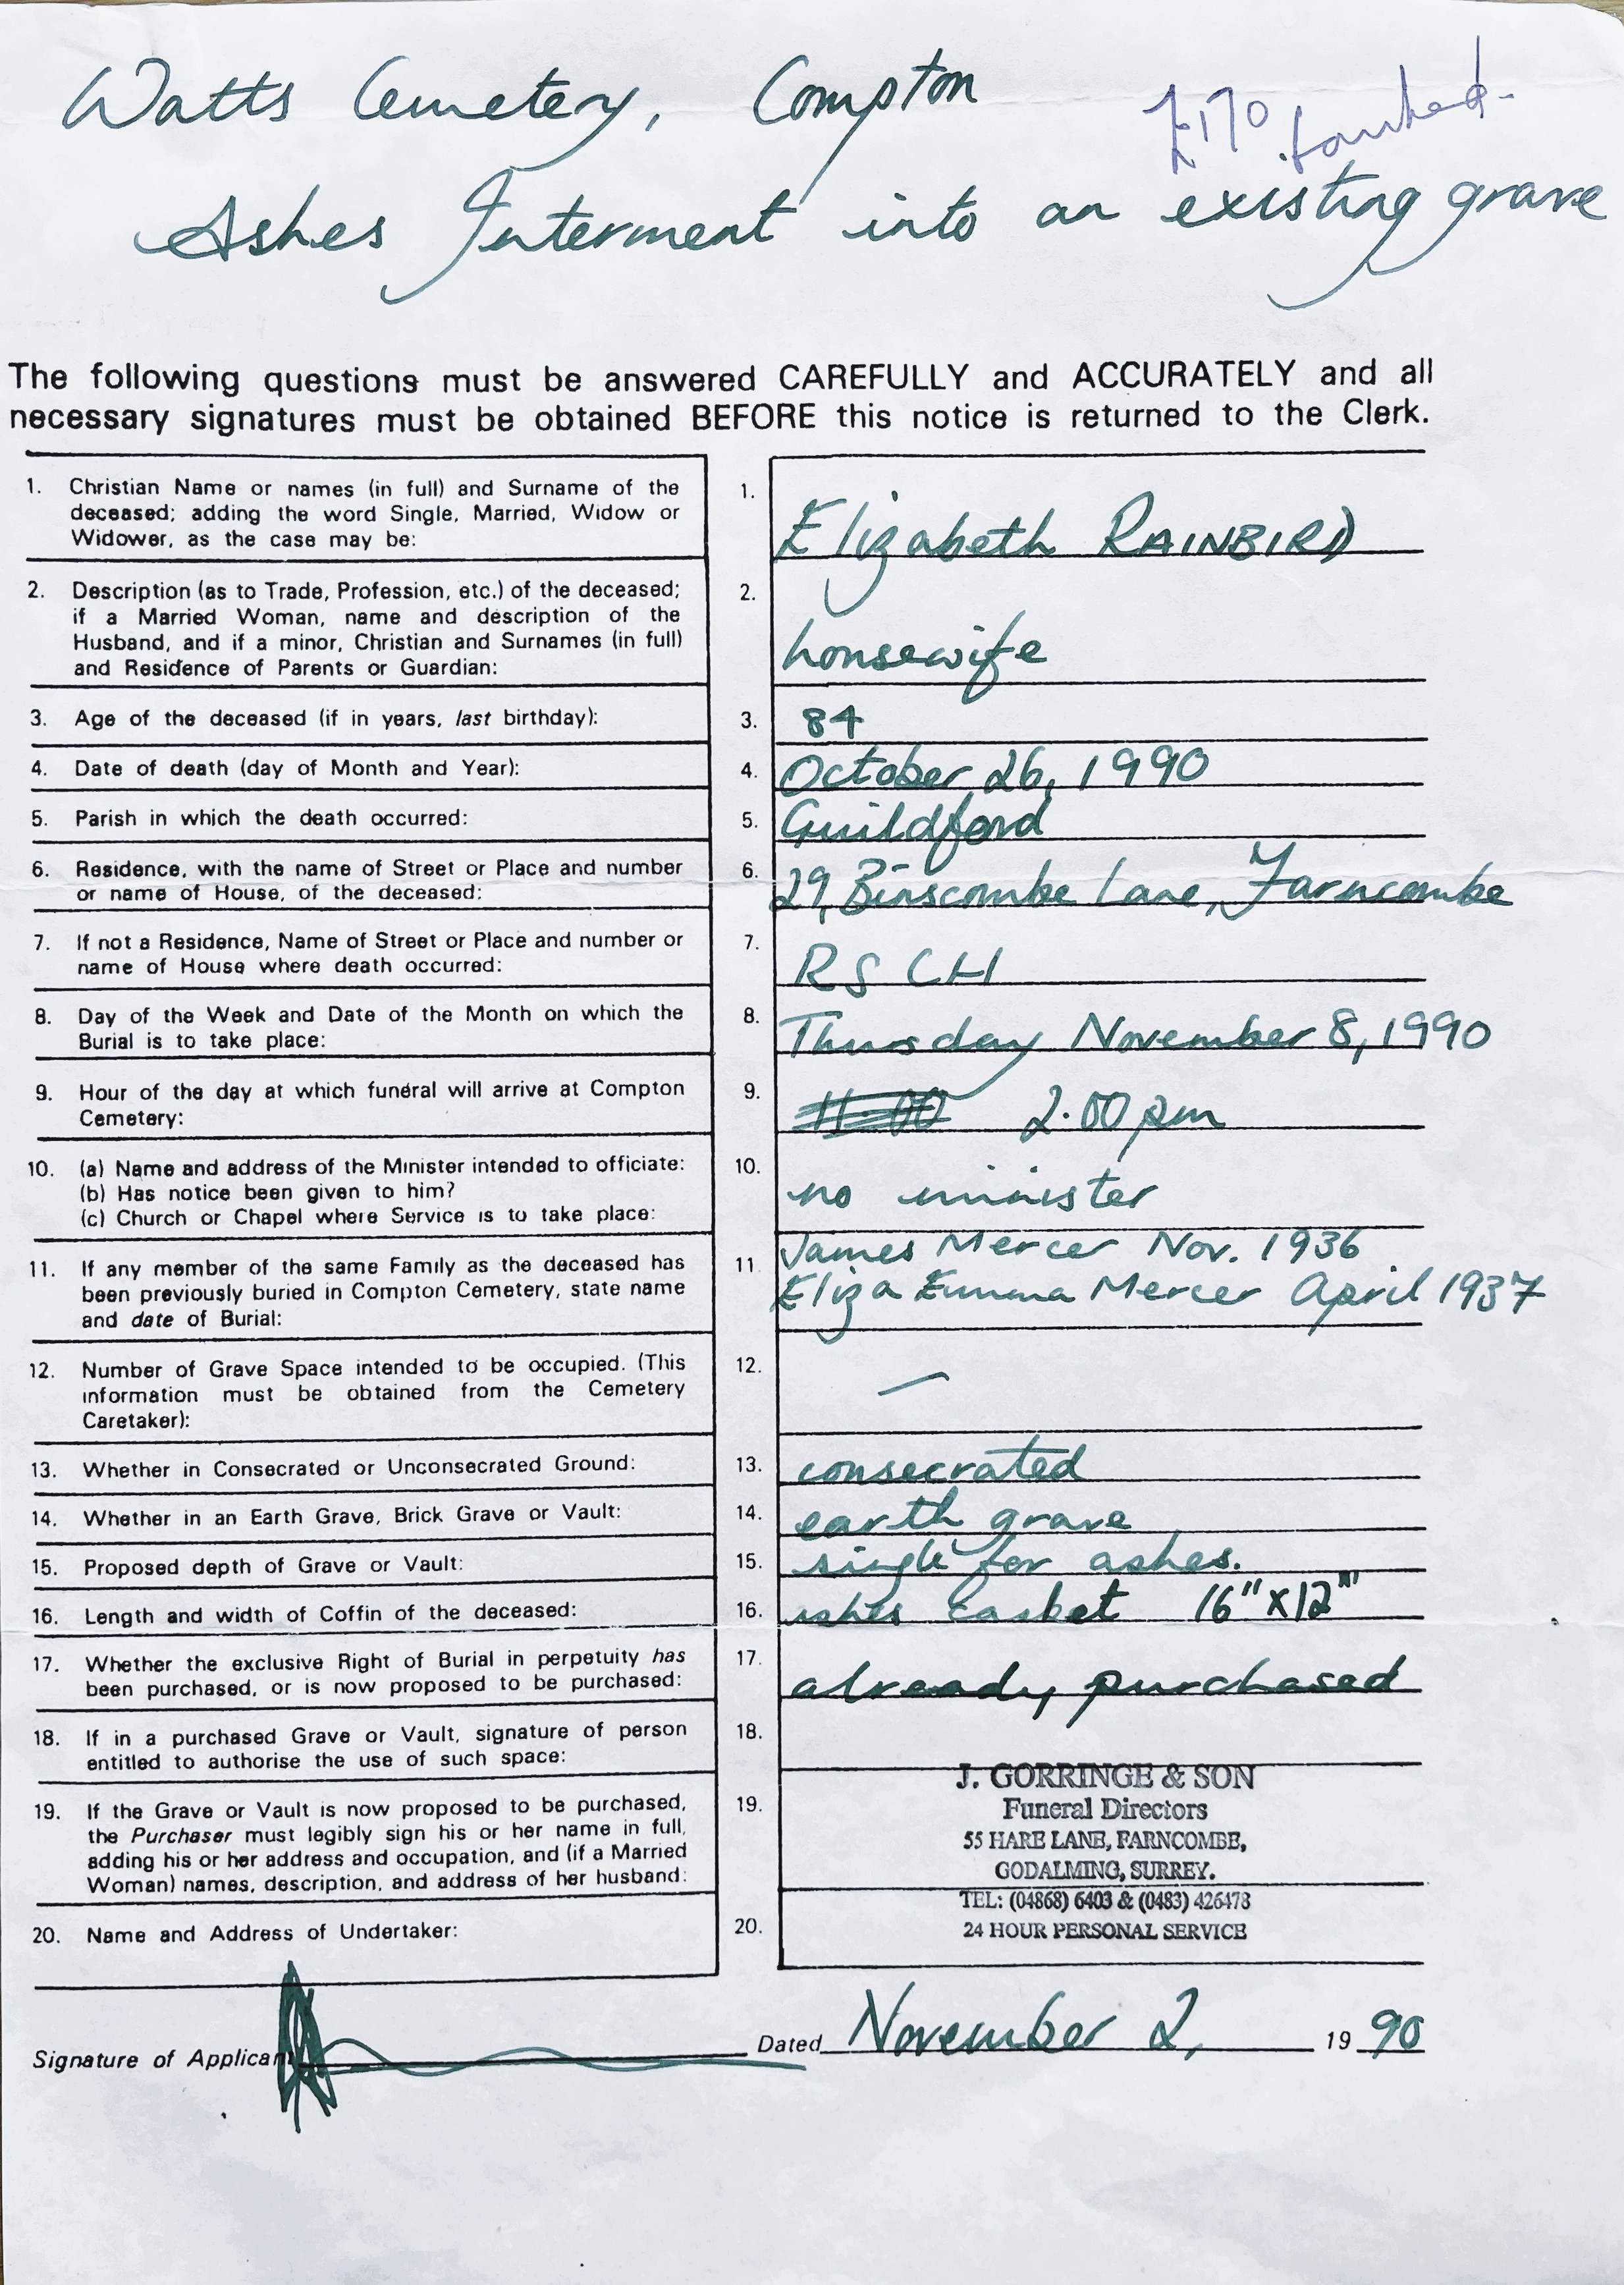 Watts Cemetery, Compton
£170
Ashes Interment into an existing grave
The following questions must be answered CAREFULLY and ACCURATELY and all
necessary signatures must be obtained BEFORE this notice is returned to the Clerk.
1. Christian Name or names (in full) and Surname of the
deceased; adding the word Single, Married, Widow or
Widower, as the case may be:
1. Elizabeth RAINBIRD
2. Description (as to Trade, Profession, etc.) of the deceased;
if a Married Woman, name and description of the
Husband, and if a minor, Christian and Surnames (in full)
and Residence of Parents or Guardian:
2. housewife
3. Age of the deceased (if in years, last birthday):
3. 84
4. Date of death (day of Month and Year):
4. October 26, 1990
5. Parish in which the death occurred:
5. Guildford
6. Residence, with the name of Street or Place and number
or name of House, of the deceased:
6. 29, Binscombe Lane, Farncombe
7. If not a Residence, Name of Street or Place and number or
name of House where death occurred:
7. RSCH
8. Day of the Week and Date of the Month on which the
Burial is to take place:
8. Thursday November 8, 1990
9. Hour of the day at which funeral will arrive at Compton
Cemetery:
9. 11.00 2.00pm
10. (a) Name and address of the Minister intended to officiate:
(b) Has notice been given to him?
(c) Church or Chapel where Service is to take place:
10. no minister
11. If any member of the same Family as the deceased has
been previously buried in Compton Cemetery, state name
and date of Burial:
11 James Mercer Nov. 1936
Eliza Emma Mercer April 1937
12. Number of Grave Space intended to be occupied. (This
information must be obtained from the Cemetery
Caretaker):
12. —
13. Whether in Consecrated or Unconsecrated Ground:
13. consecrated
14. Whether in an Earth Grave, Brick Grave or Vault:
14. earth grave
15. Proposed depth of Grave or Vault:
15. single for ashes.
16. Length and width of Coffin of the deceased:
16. ashes casket 16" x 12"
17. Whether the exclusive Right of Burial in perpetuity has
been purchased, or is now proposed to be purchased:
17. already purchased
18. If in a purchased Grave or Vault, signature of person
entitled to authorise the use of such space:
18.
19. If the Grave or Vault is now proposed to be purchased,
the Purchaser must legibly sign his or her name in full,
adding his or her address and occupation, and (if a Married
Woman) names, description, and address of her husband:
19.
20. Name and Address of Undertaker:
20.
J. GORRINGE & SON
Funeral Directors
55 HARE LANE, FARNCOMBE,
GODALMING, SURREY.
TEL: (04868) 6403 & (0483) 426473
24 HOUR PERSONAL SERVICE
Signature of Applicant
Dated November 2, 19 90